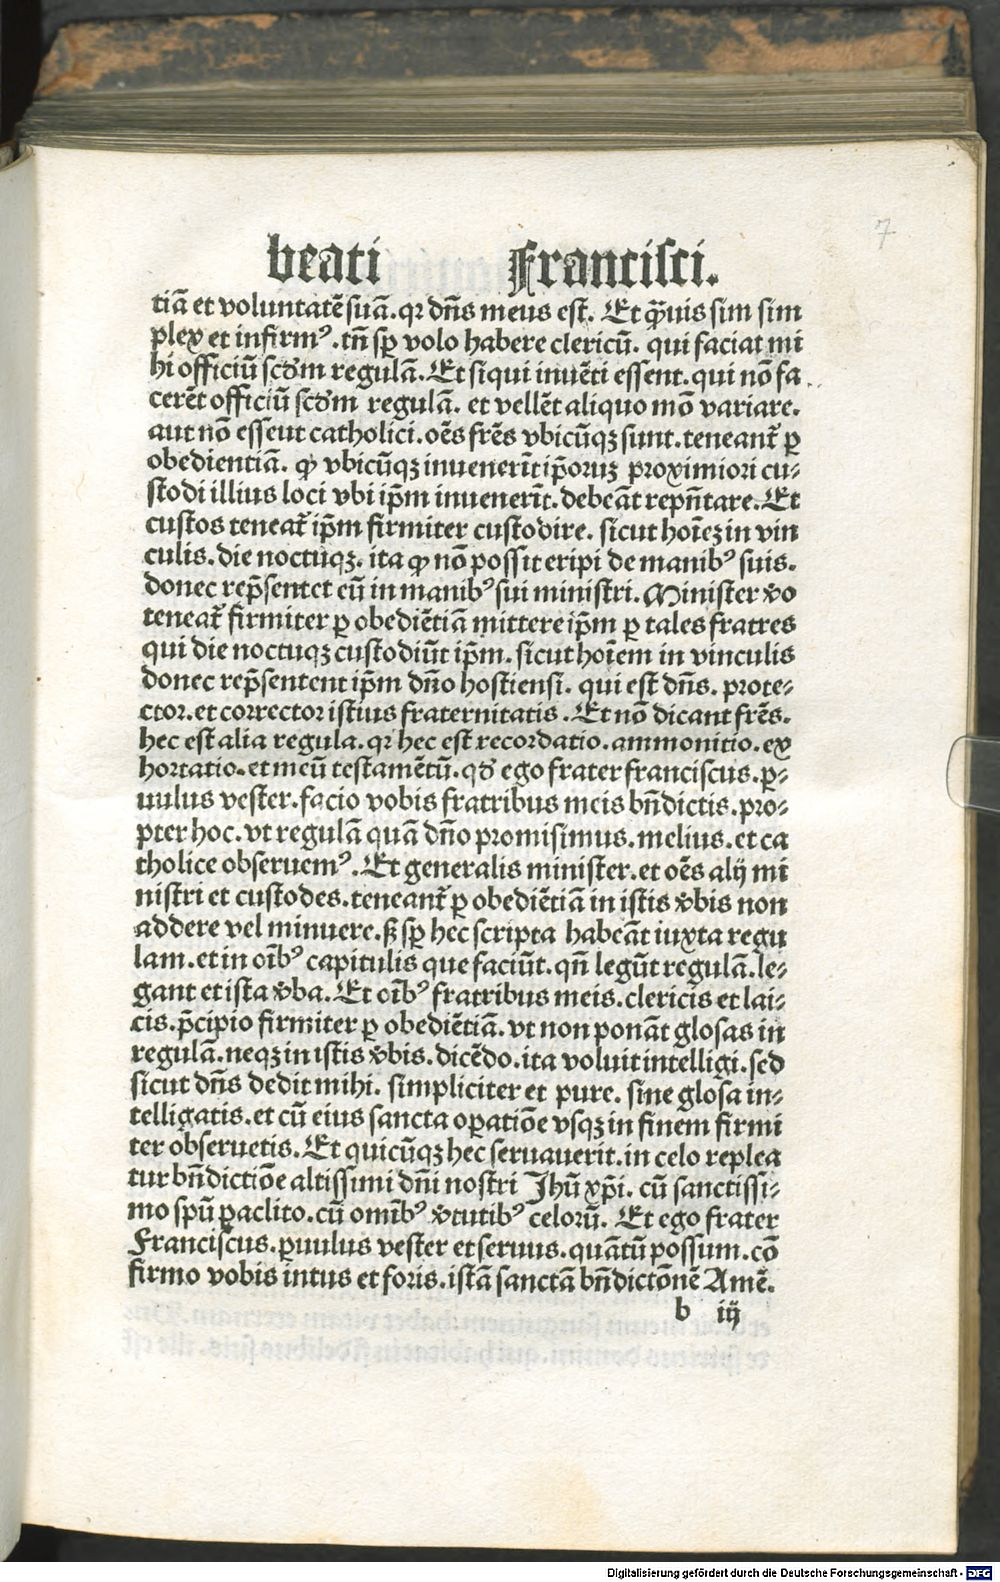 7
beati Francisci.
tiā et voluntatē suā. qꝛ dn̄s meus est. Et qͣ̄uis sim sim
plex et infirmꝰ. tn̄ sꝑ volo habere clericū. qui faciat mi
hi officiū scd̓m regulā. Et siqui inuēti essent. qui nō fa
cerēt officiū scd̓m regulā. et vellēt aliquo mō variare.
aut nō esseut catholici. oēs fr̄es vbicūqꝫ sunt. teneant᷑ ꝑ
obedientiā. ꝙ vbicūqꝫ inuenerīt ip̄oruꝫ proximiori cu⸗
stodi illius loci vbi ip̄m inuenerīt. debeāt repn̄tare. Et
custos teneat᷑ ip̄m firmiter custodire. sicut hoīeꝫ in vin
culis. die noctuqꝫ. ita ꝙ nō possit eripi de manibꝰ suis.
donec rep̄sentet eū in manibꝰ sui ministri. Minister v̓o
teneat᷑ firmiter ꝑ obediētiā mittere ip̄m ꝑ tales fratres
qui die noctuqꝫ custodiūt ip̄m. sicut hoīem in vinculis
donec rep̄sentent ip̄m dn̄o hostiensi. qui est dn̄s. prote⸗
ctor. et corrector istius fraternitatis. Et nō dicant fr̄es.
hec est alia regula. qꝛ hec est recordatio. ammonitio. ex
hortatio. et meū testamētū. qd̓ ego frater franciscus. ꝑ⸗
uulus vester. facio vobis fratribus meis bn̄dictis. pro⸗
pter hoc. vt regulā quā dn̄o promisimus. melius. et ca
tholice obseruemꝰ. Et generalis minister. et oēs alij mi
nistri et custodes. teneant᷑ ꝑ obediētiā in istis v̓bis non
addere vel minuere. ß sꝑ hec scripta habeāt iuxta regu
lam. et in oībꝰ capitulis que faciūt. qn̄ legūt regulā. le⸗
gant et ista v̓ba. Et oībꝰ fratribus meis. clericis et lai⸗
cis. p̄cipio firmiter ꝑ obediētiā. vt non ponāt glosas in
regulā. neqꝫ in istis v̓bis. dicēdo. ita voluit intelligi. sed
sicut dn̄s dedit mihi. simpliciter et pure. sine glosa in⸗
telligatis. et cū eius sancta oꝑatiōe vsqꝫ in finem firmi
ter obseruetis. Et quicūqꝫ hec seruauerit. in celo replea
tur bn̄dictiōe altissimi dn̄i nostri Jhū xp̄i. cū sanctissi⸗
mo spū ꝑaclito. cū omībꝰ v̓tutibꝰ celorū. Et ego frater
Franciscus. ꝑuulus vester et seruus. quātū possum. cō
firmo vobis intus et foris. istā sanctā bn̄dictōnē Amē.
b iij
Digitalisierung gefördert durch die Deutsche Forschungsgemeinschaft - DFG